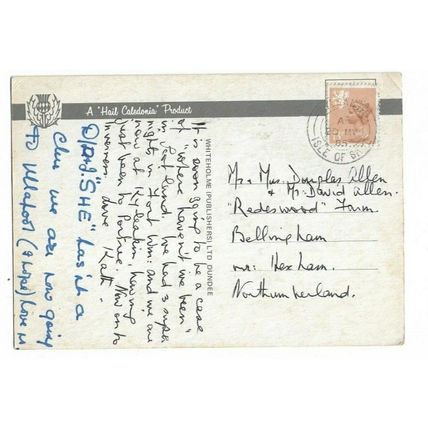 A "Hail Caledonia" Product
WHITEHOLME (PUBLISHERS) LTD DUNDEE
It is soon going to be a case
of "where haven't we been"
in Scotland. We had 3 super
nights in Fort Wm: and we are
now at Kyleakin, having
just been to Portree. Now on to
Inverness. Love Kath.
"SHE" has it a
Chx we are now going
to Ullapool (I hope) Love M
Mr & Mrs. Douglas Allen
& Mr. David Allen.
"Redeswood" Farm
Bellingham
nr: Hexham.
Northumberland.
ISLE OF